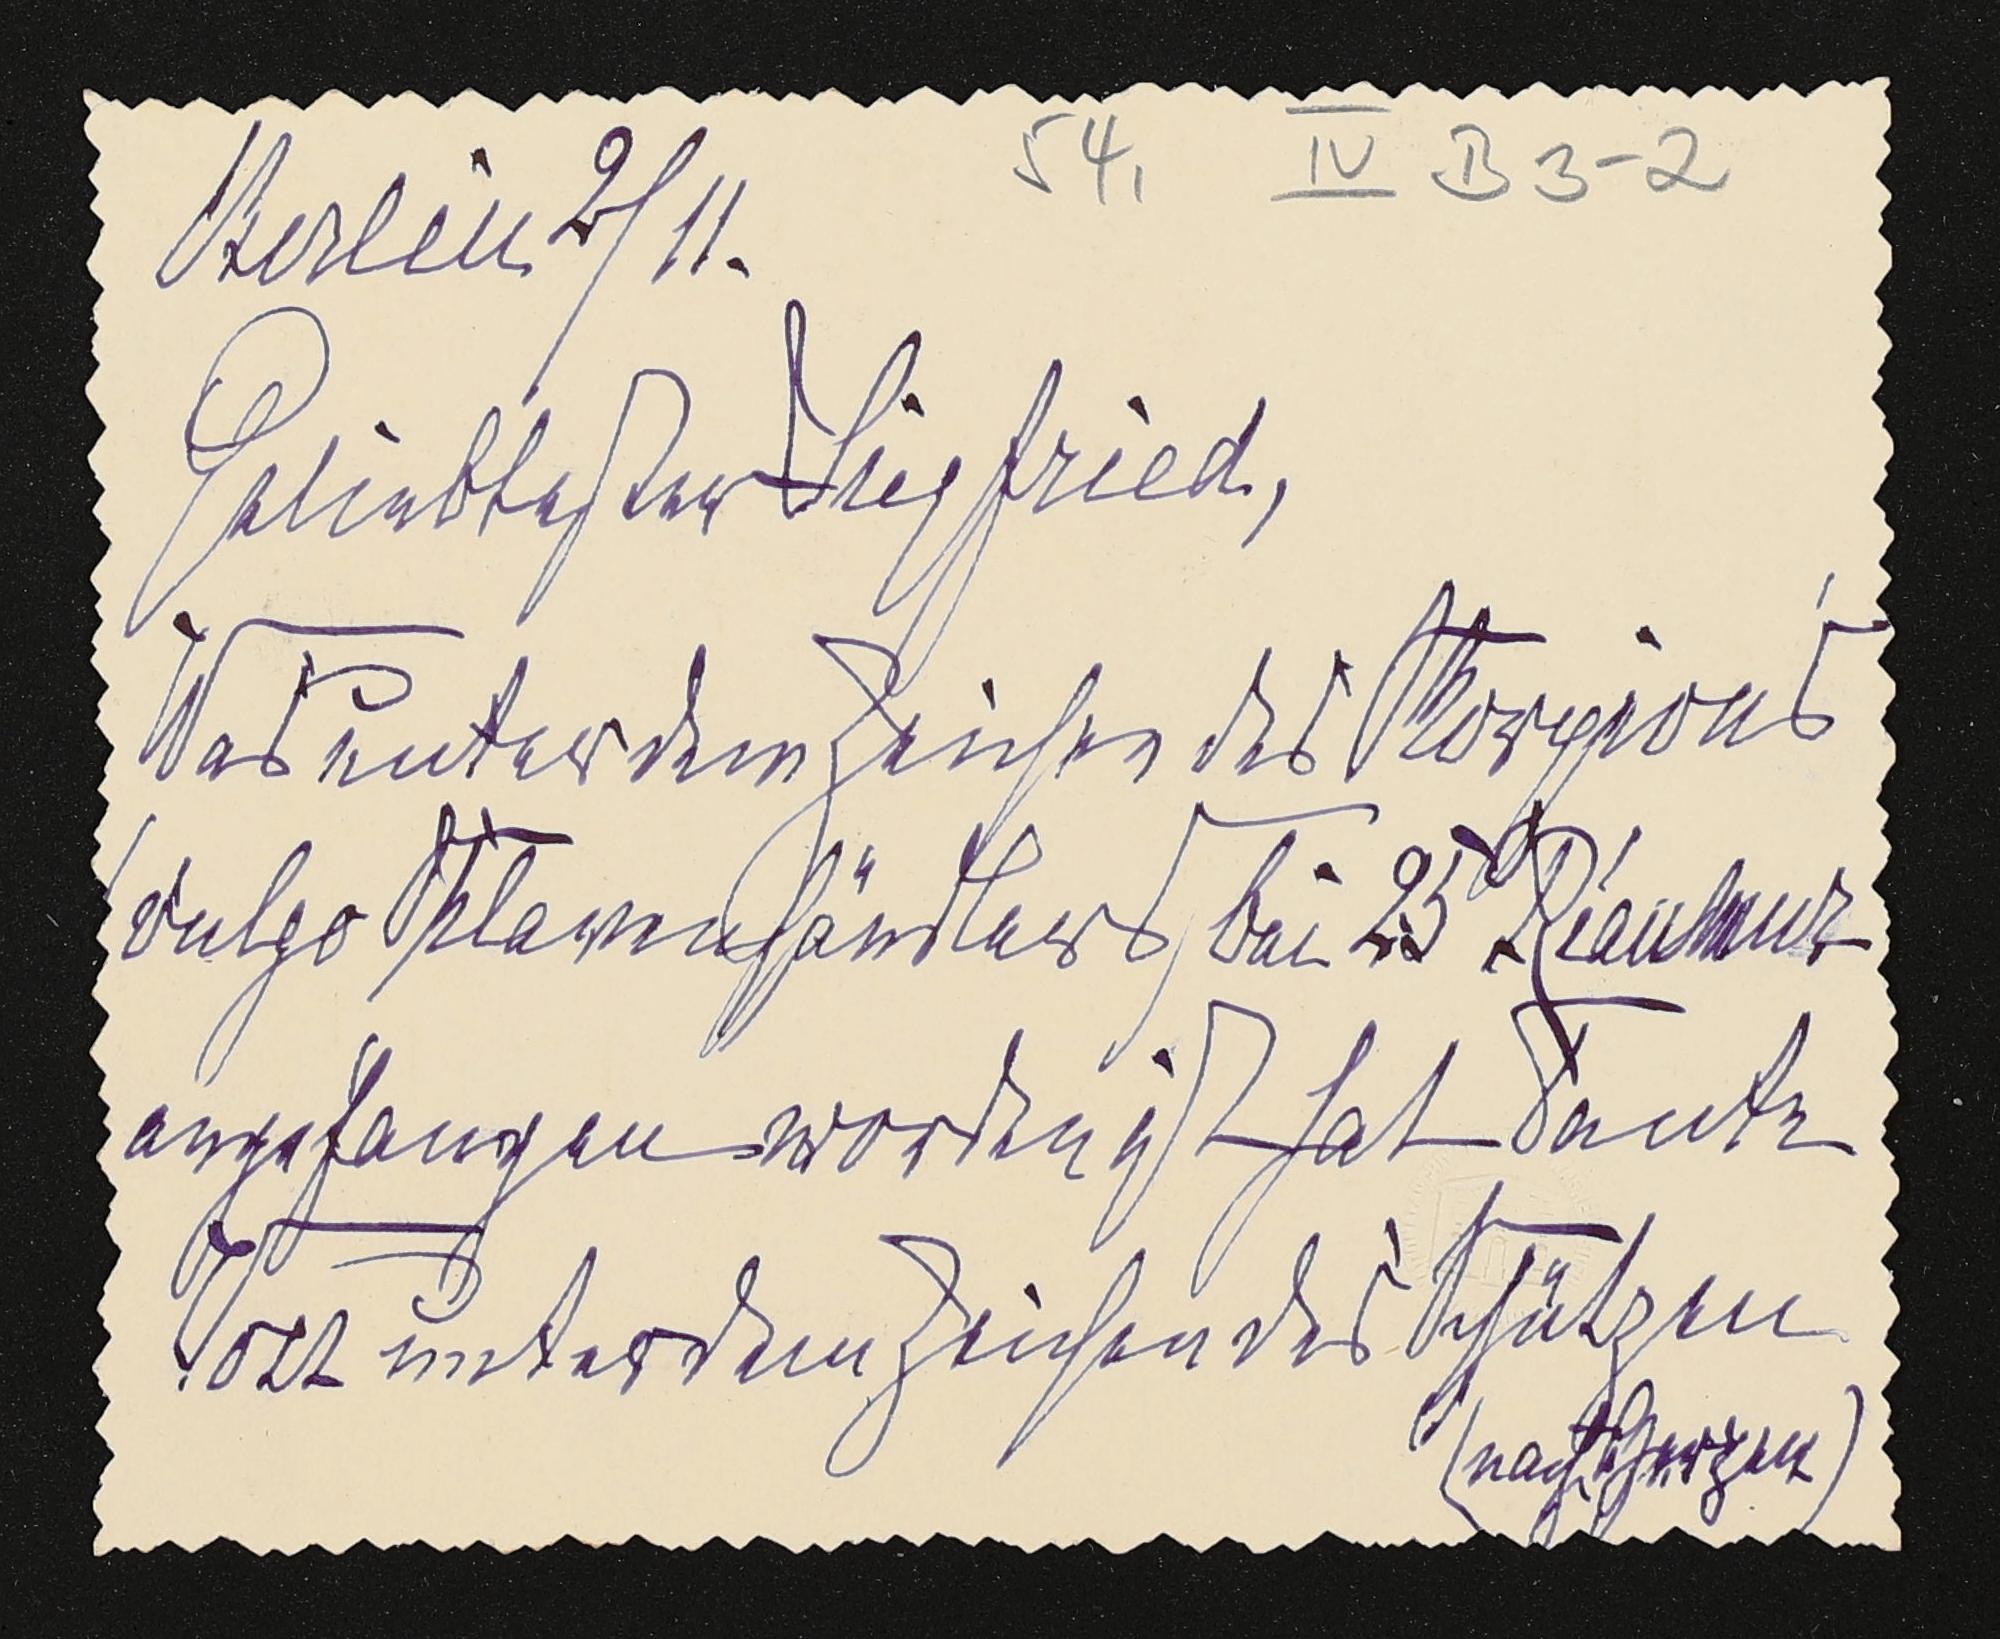 54, IV B 3-2
Berlin 2/11.
Geliebtester Siegfried,
Was unter dem Zeichen des Skorpions
(vulgo Sklavenhändlers) bei 25° Réaumur
angefangen worden ist hat Tante
unter dem Zeichen des Schützen
(nach Herzen)